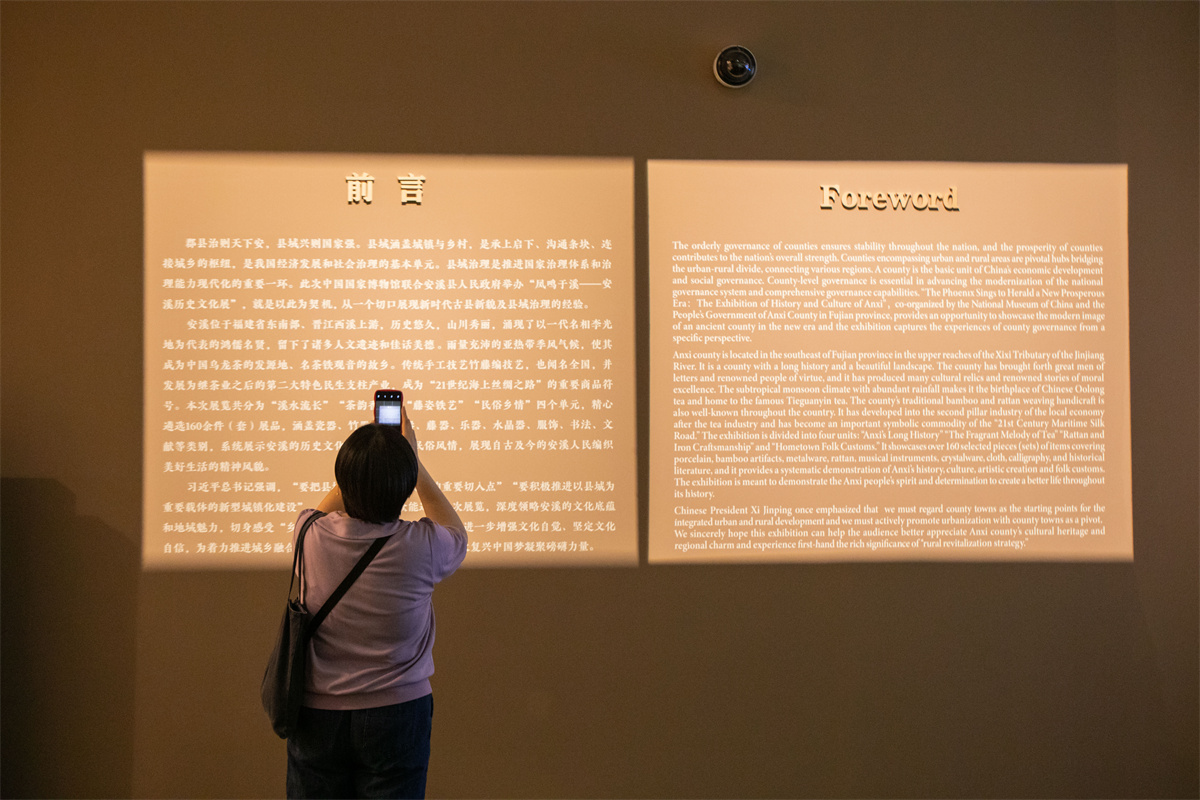 前言
郡县治则天下安，县域兴则国家强。县域涵盖城镇与乡村，是承上启下、沟通条块、连
接城乡的枢纽，是我国经济发展和社会治理的基本单元。县域治理是推进国家治理体系和治
理能力现代化的重要一环。此次中国国家博物馆联合安溪县人民政府举办“凤鸣于溪——安
溪历史文化展”，就是以此为契机，从一个切口展现新时代古县新貌及县域治理的经验。
安溪位于福建省东南部、晋江西溪上游，历史悠久，山川秀丽，涌现了以一代名相李光
地为代表的鸿儒名贤，留下了诸多人文遗迹和佳话美德。雨量充沛的亚热带季风气候，使其
成为中国乌龙茶的发源地、名茶铁观音的故乡。传统手工技艺竹藤编技艺，也闻名全国，并
发展为继茶业之后的第二大特色民生支柱产业，成为“21世纪海上丝绸之路”的重要商品符
号。本次展览共分为“溪水流长”“茶韵 “藤姿铁艺”“民俗乡情”四个单元，精心
遴选160余件（套）展品，涵盖瓷器、竹 藤器、乐器、水晶器、服饰、书法、文
献等类别，系统展示安溪的历史文化 民俗风情，展现自古及今的安溪人民编织
美好生活的精神风貌。
习近平总书记强调，“要把县 重要切入点”“要积极推进以县城为
重要载体的新型城镇化建设” 次展览，深度领略安溪的文化底蕴
和地域魅力，切身感受“乡 进一步增强文化自觉、坚定文化
自信，为着力推进城乡融合 复兴中国梦凝聚磅礴力量。
Foreword
The orderly governance of counties ensures stability throughout the nation, and the prosperity of counties
contributes to the nation's overall strength. Counties encompassing urban and rural areas are pivotal hubs bridging
the urban-rural divide, connecting various regions. A county is the basic unit of China's economic development
and social governance. County-level governance is essential in advancing the modernization of the national
governance system and comprehensive governance capabilities. "The Phoenix Sings to Herald a New Prosperous
Era: The Exhibition of History and Culture of Anxi", co-organized by the National Museum of China and the
People's Government of Anxi County in Fujian province, provides an opportunity to showcase the modern image
of an ancient county in the new era and the exhibition captures the experiences of county governance from a
specific perspective.
Anxi county is located in the southeast of Fujian province in the upper reaches of the Xixi Tributary of the Jinjiang
River. It is a county with a long history and a beautiful landscape. The county has brought forth great men of
letters and renowned people of virtue, and it has produced many cultural relics and renowned stories of moral
excellence. The subtropical monsoon climate with abundant rainfall makes it the birthplace of Chinese Oolong
tea and home to the famous Tieguanyin tea. The county's traditional bamboo and rattan weaving handicraft is
also well-known throughout the country. It has developed into the second pillar industry of the local economy
after the tea industry and has become an important symbolic commodity of the "21st Century Maritime Silk
Road." The exhibition is divided into four units: "Anxi's Long History" "The Fragrant Melody of Tea" "Rattan and
Iron Craftsmanship" and "Hometown Folk Customs." It showcases over 160 selected pieces (sets) of items covering
porcelain, bamboo artifacts, metalware, rattan, musical instruments, crystalware, cloth, calligraphy, and historical
literature, and it provides a systematic demonstration of Anxi's history, culture, artistic creation and folk customs.
The exhibition is meant to demonstrate the Anxi people's spirit and determination to create a better life throughout
its history.
Chinese President Xi Jinping once emphasized that we must regard county towns as the starting points for the
integrated urban and rural development and we must actively promote urbanization with county towns as a pivot.
We sincerely hope this exhibition can help the audience better appreciate Anxi county's cultural heritage and
regional charm and experience first-hand the rich significance of "rural revitalization strategy."